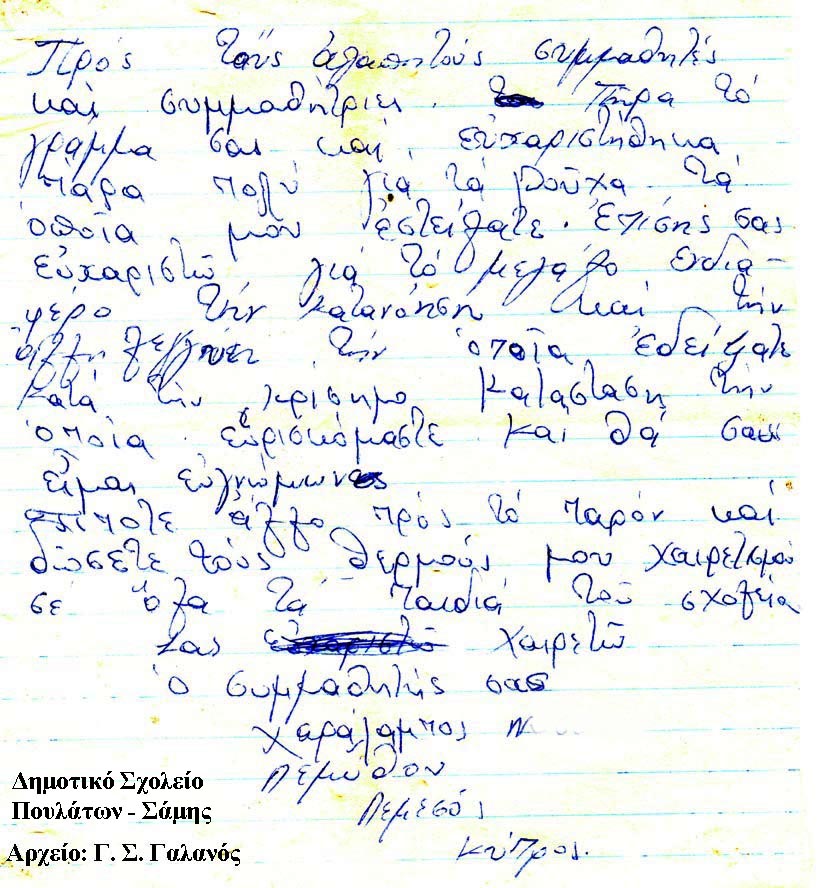 Πρός τούς ἀγαπητούς συμμαθητές
καί συμμαθήτριες. Πῆρα τό
γράμμα σας καί εὐχαριστήθηκα
πάρα πολύ γιά τά ροῦχα τά
ὁποῖα μοῦ ἐστείλατε. Ἐπίσης σας
εὐχαριστῶ γιά τό μεγάλο ενδια-
φέρο τήν κατανόηση καί τήν
τήν ὁποῖα ἐδείξατε
κατά τήν κρίσημο κατάσταση τήν
ὁποῖα εὑρισκόμαστε καί θά σας
εἶμαι εὐγνώμων
τίποτε ἄλλο πρός τό παρόν καί
δώσετε τούς θερμούς μου χαιρετισμού
σέ ὅλα τά παιδιά τοῦ σχολεία
σας χαιρετῶ
ὁ συμμαθητής σας
Χαράλαμπος Ν
Λεμύθου
Λεμεσός
Κύπρος.
Δημοτικό Σχολείο
Πουλάτων - Σάμης
Αρχείο: Γ. Σ. Γαλανός